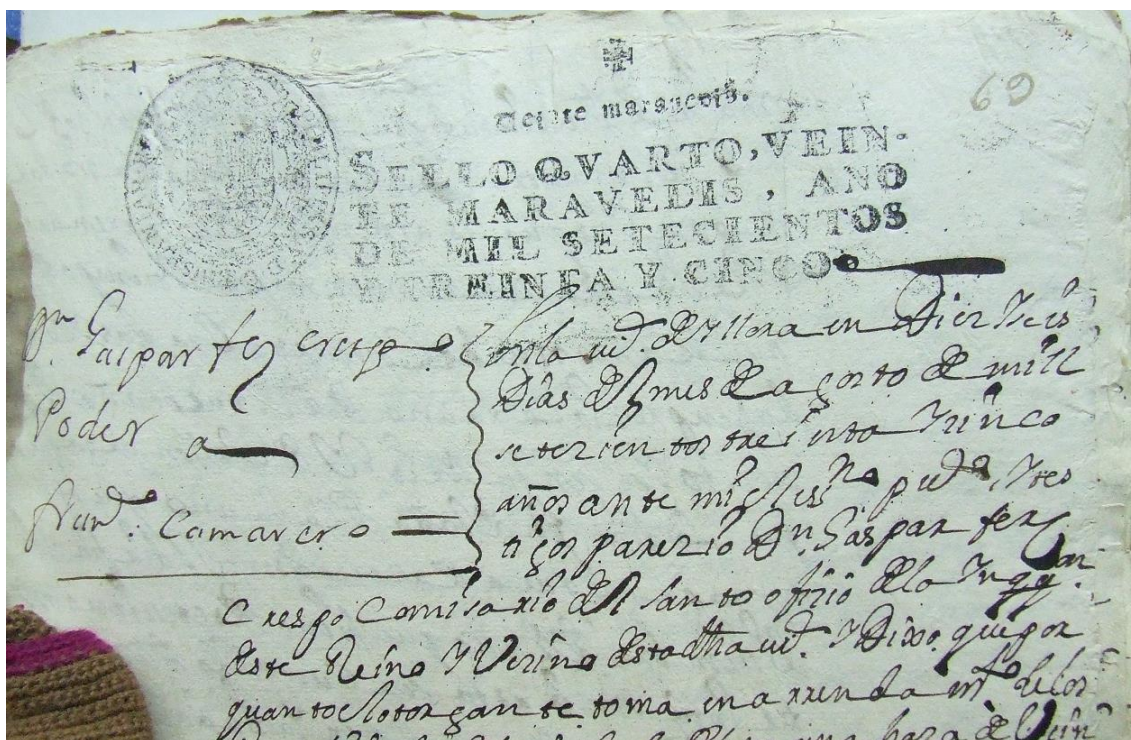 69
Veinte maravedis.
SELLO QVARTO, VEIN-
TE MARAVEDIS, AÑO
DE MIL SETECIENTOS
Y TREINTA Y CINCO
Dn. Gaspar frz crespo
Poder a
franco. Camarero =
En la vid. de Yllora en Diez Yseis
Dias del mes de agosto de mill
setezientos treinta Yzinco
años ante mi el essno pucd. Ytes
tigos parezio Dn. Gaspar ferz
Crespo Comisario del santo ofizio de la Inqqon.
deste Reino Y Vezino desta dha vid. Y Dixo que por
quanto el otorgante toma en arrendamto de los